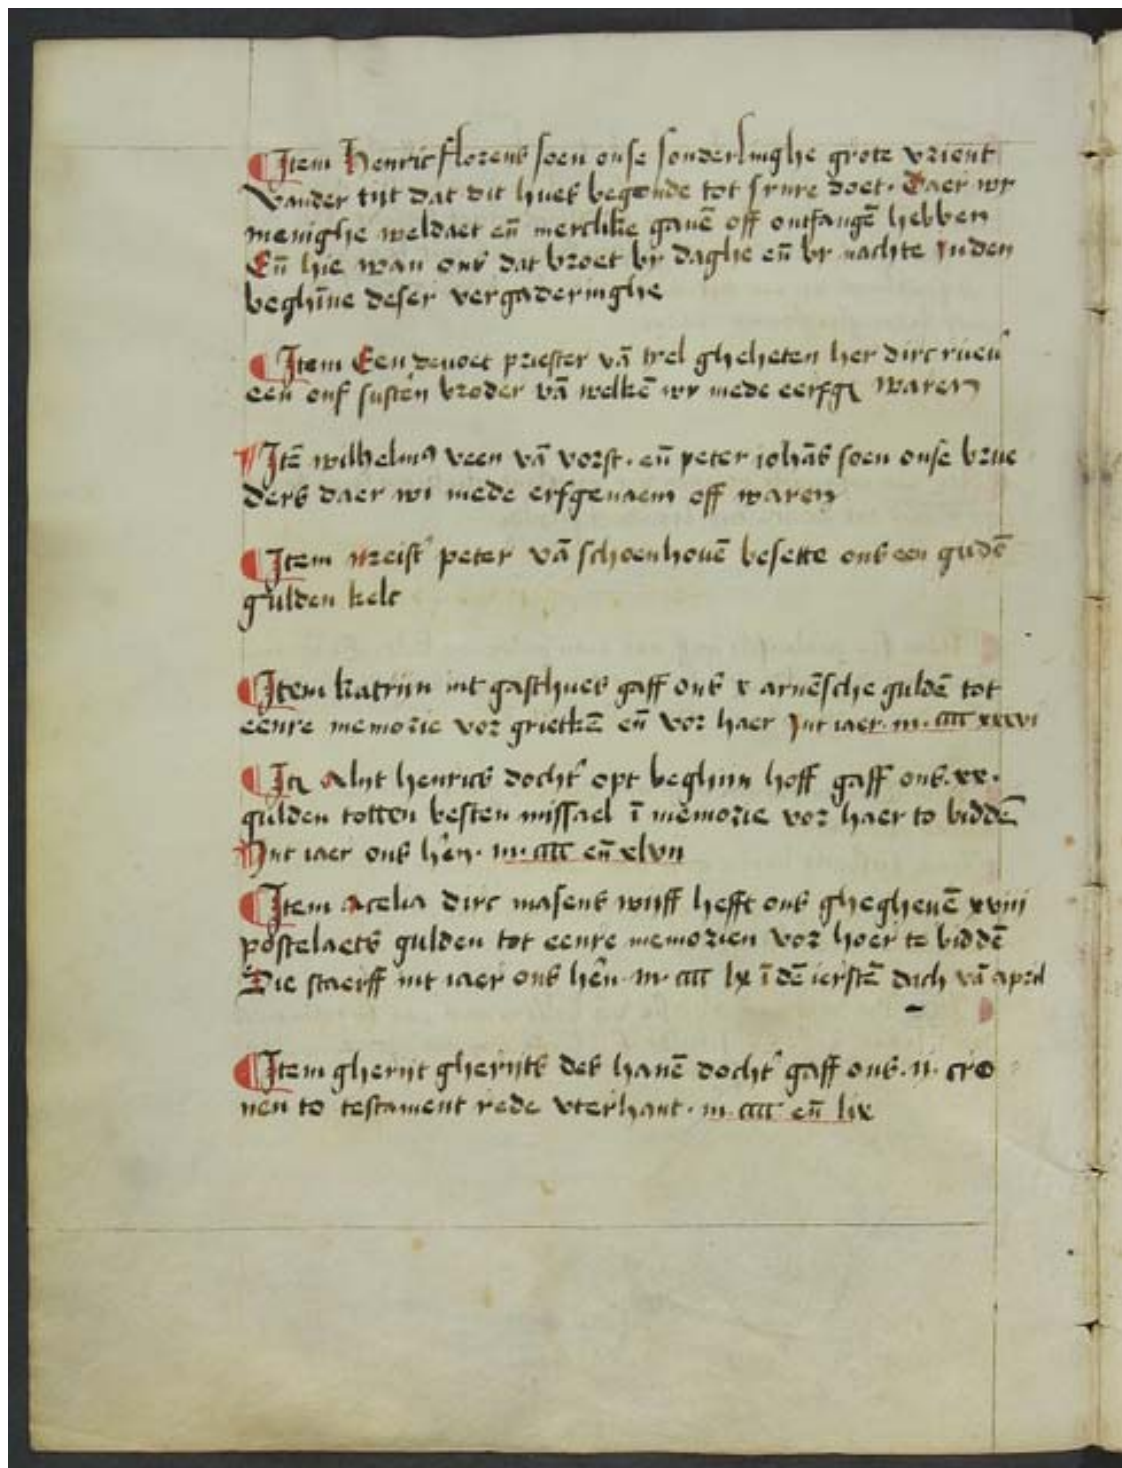 ¶ Item Henric florens soen onse sonderlinghe grote vrient
Vander tijt dat dit hues begonde tot sijnre doet. Daer wy
menighe weldaet eñ merclike gauē off ontfangē hebben
Eñ hie wan ons dat broet by daghe eñ by nachte Inden
beghīne deser vergaderinghe
¶ Item Een deuoet priester vā tyel gheheten her dirc
een onser susteren broder vā welkē wy mede waren
¶ Itē wilhelmꝰ veen vā vorst. eñ peter iohās soen onse brue
ders daer wi mede erfgenaem off waren
¶ Item Meistʼ peter vā schoenhouē besette ons een gudē
gulden kelc
¶ Item katrijn int gasthues gaff ons x arnēsche guldē tot
eenre memorie vor grietkē eñ vor haer Int iaer. m. cccc xxxvi
¶ Alijt henrics dochtʼ opt beghijn hoff gaff ons. xx.
gulden totten besten missael ī memorie vor haer to biddē
Int iaer ons hēn. m. cccc eñ xlvii
¶ Item Acelia dirc masens wijff hefft ons ghegheuē xviii
postelaets gulden tot eenre memorien vor hoer te biddē
Die staerff int iaer ons hēn. m. cccc lx ī dē ierstē dach vā april
¶ Item gherijt gherijts des hanē dochtʼ gaff ons. ij. cro
nen to testament rede vterhant. m. cccc eñ lix